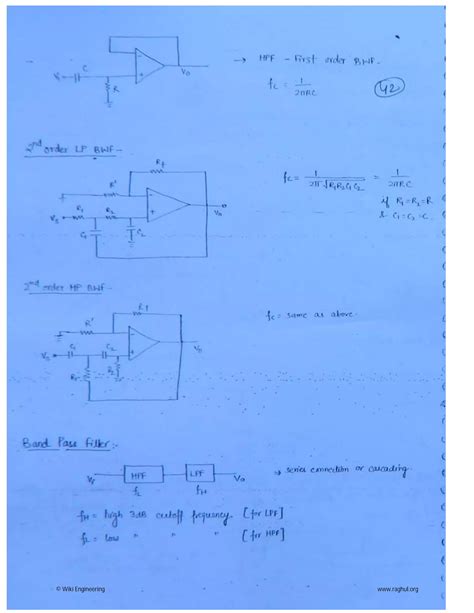 C
V₀
Vs
R
→ HPF - First order BWF.
fL = 1 / 2πRC
42
2nd order LP BWF -
Rf
R'
R₁ R₂
Vs
V₀
C₁ C₂
fc = 1 / 2π√R₁R₂C₁C₂ = 1 / 2πRC
if R₁=R₂=R
& C₁=C₂=C.
2nd order HP BWF -
Rf
R'
C₁ C₂
Vs
V₀
R₁ R₂
fc = same as above.
Band Pass Filter :-
HPF LPF V₀
fL fH
→ series connection or cascading.
fH = high 3dB cutoff frequency. [for LPF]
fL = low " " " [for HPF]
© Wiki Engineering www.raghul.org